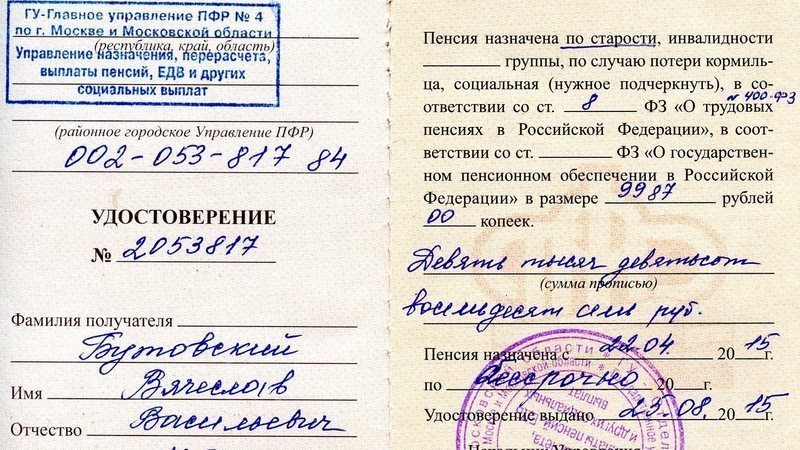 ГУ-Главное управление ПФР № 4
по г. Москве и Московской области
(республика, край, область)
Управление назначения, перерасчета,
выплаты пенсий, ЕДВ и других
социальных выплат
(районное городское Управление ПФР)
002-053-817 84
УДОСТОВЕРЕНИЕ
№ 2053817
Фамилия получателя
Бутовский
Имя Вячеслав
Отчество Васильевич
Пенсия назначена по старости, инвалидности
группы, по случаю потери кормиль-
ца, социальная (нужное подчеркнуть), в со-
№ 400-ФЗ
ответствии со ст. 8 ФЗ «О трудовых
пенсиях в Российской Федерации», в соот-
ветствии со ст. ФЗ «О государствен-
ном пенсионном обеспечении в Российской
Федерации» в размере 9987 рублей
00 копеек.
Девять тысяч девятьсот
(сумма прописью)
восемьдесят семь руб.
Пенсия назначена с 22.04. 2015г.
по Бессрочно 20 г.
Удостоверение выдано 25.08. 2015г.